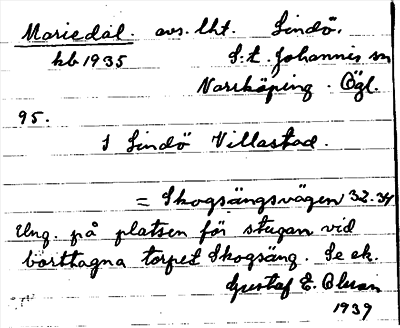 Mariedal. avs. lht. Lindö.
kb 1935 S:t Johannis sn
Norrköping. Ögl.
95.
I Lindö Villastad.
= Skogsängsvägen 32.34
Ung. på platsen för stugan vid
borttagna torpet Skogsäng. Se ek.
Gustaf E. Olsson
1939